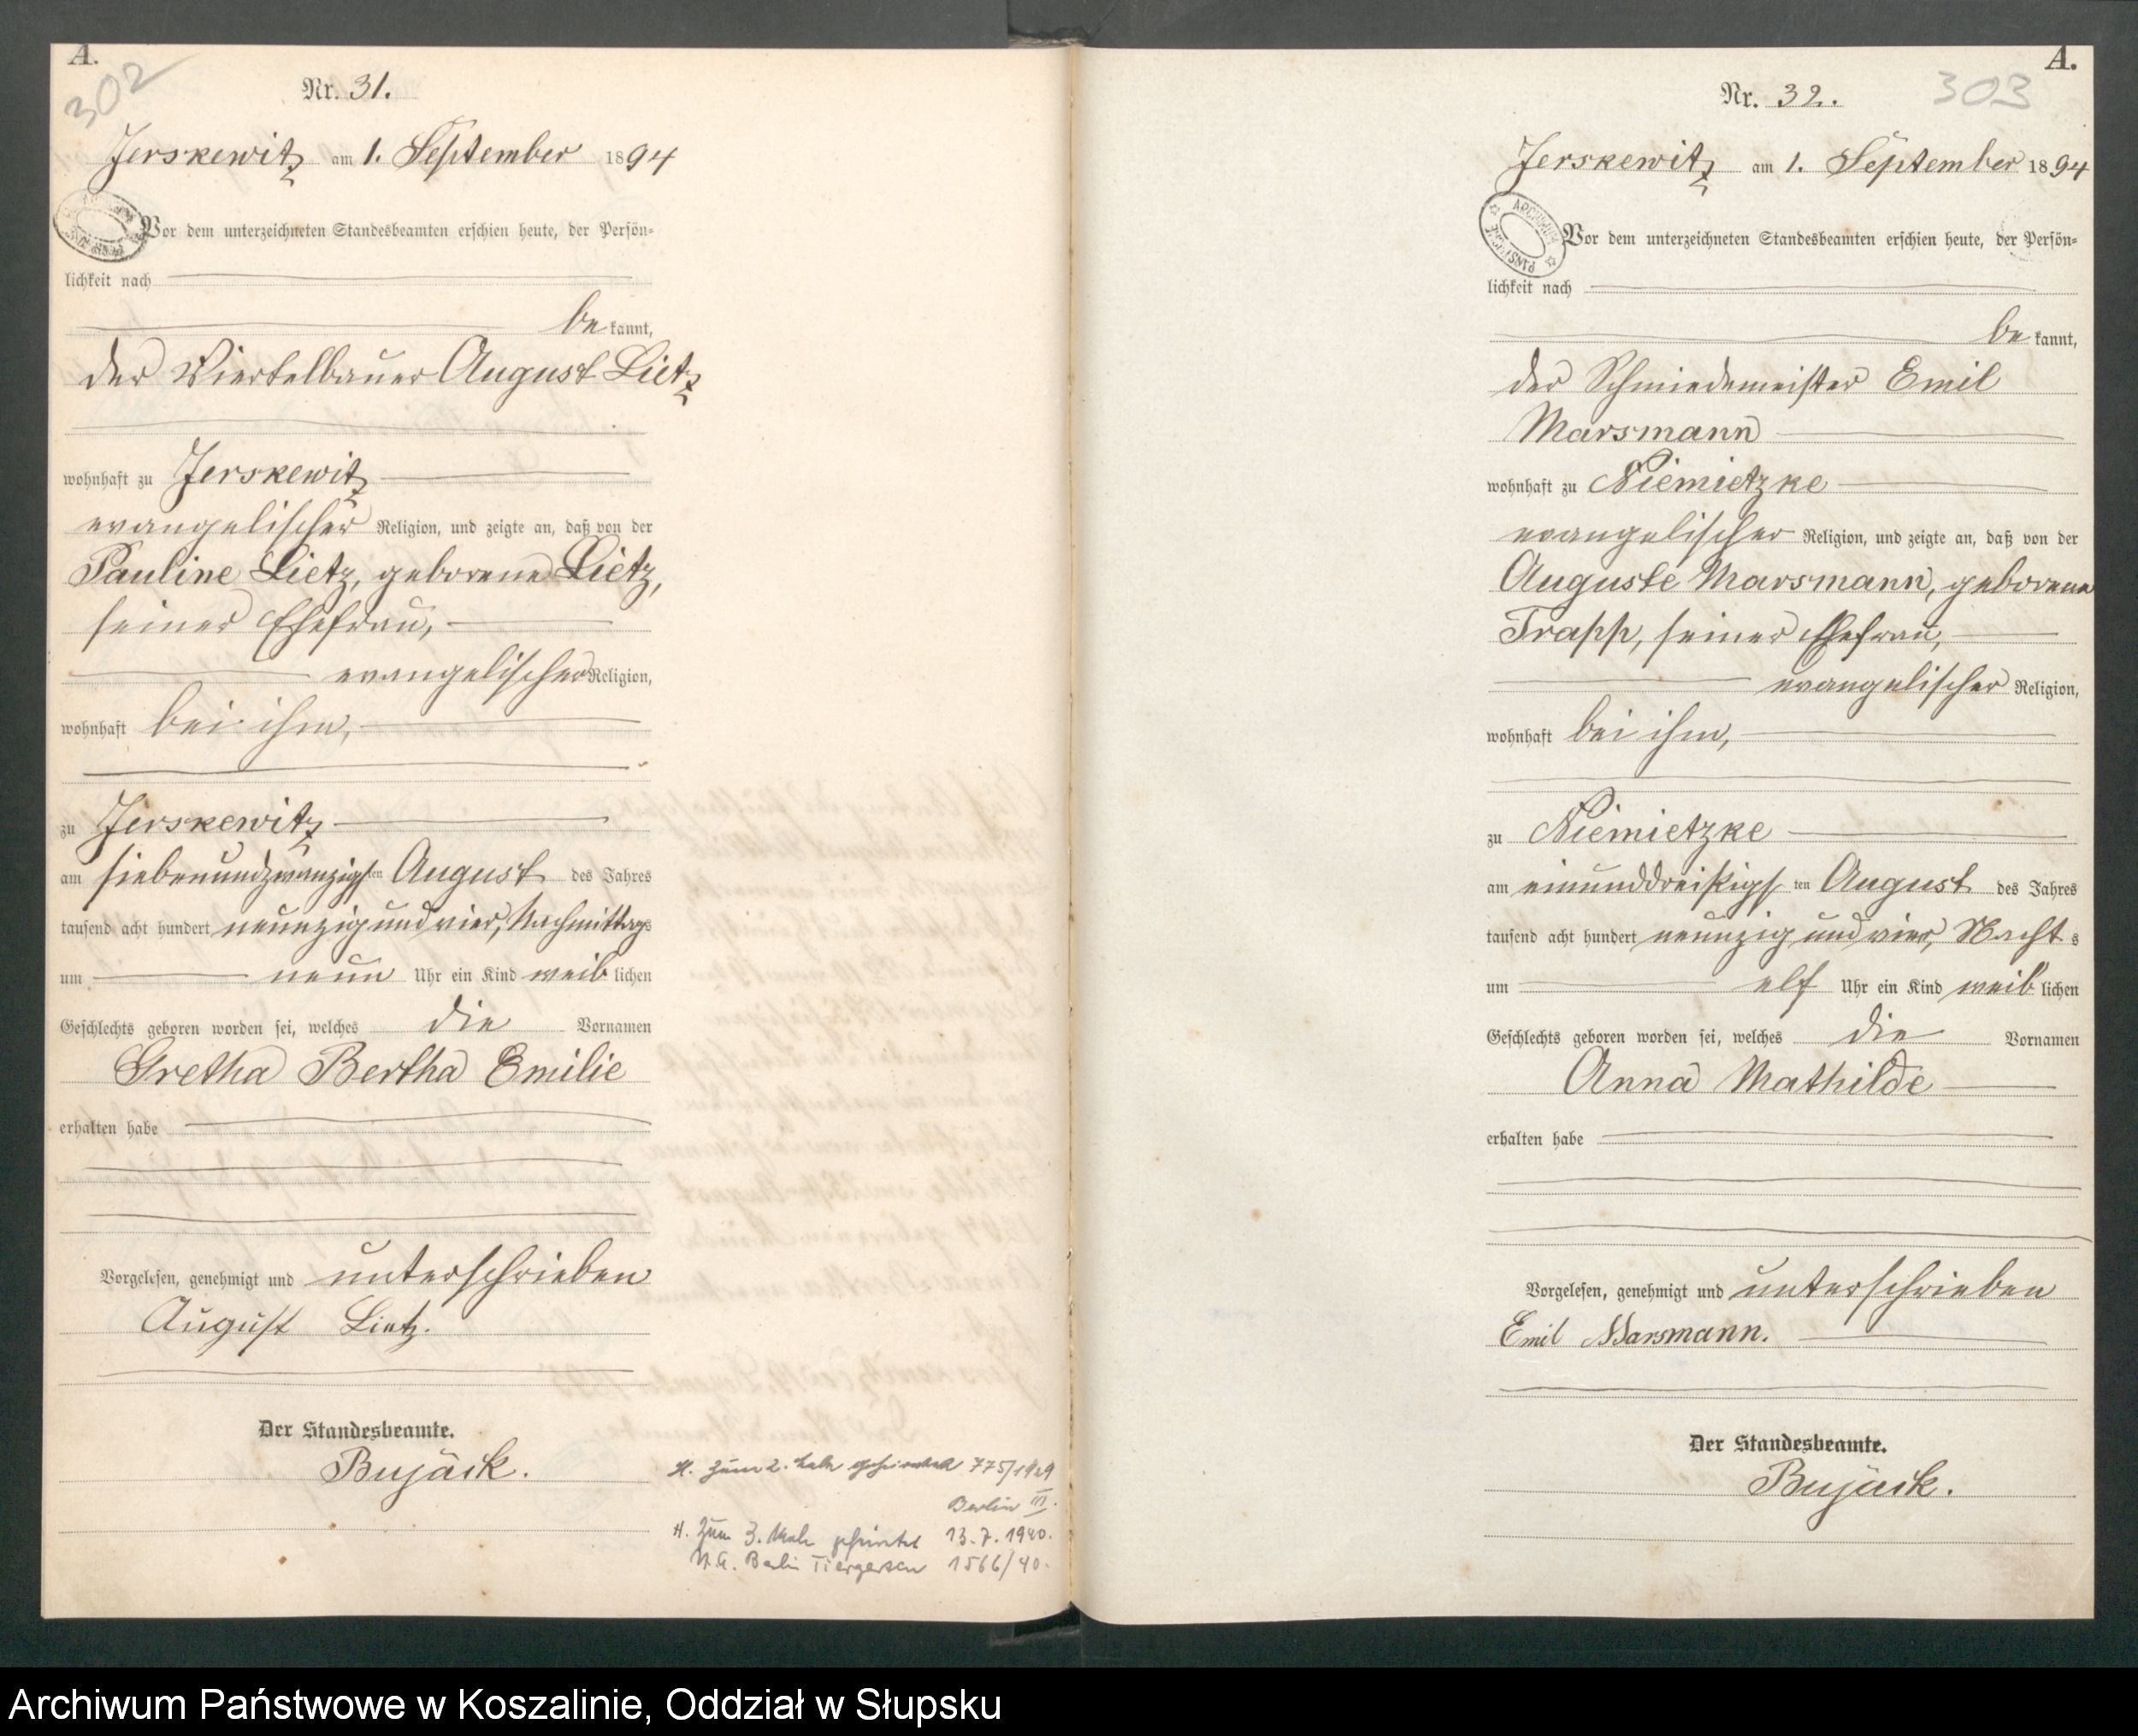 A.
302
Nr. 31.
Jerskewitz am 1. September 1894
Vor dem unterzeichneten Standesbeamten erschien heute, der Persön-
lichkeit nach
be kannt,
der Viertelbauer August Lietz
wohnhaft zu Jerskewitz
evangelischer Religion, und zeigte an, daß von der
Pauline Lietz, geborene Lietz,
seiner Ehefrau,
evangelischer Religion,
wohnhaft bei ihm,
zu Jerskewitz
am siebenundzwanzigsten August des Jahres
tausend acht hundert neunzig und vier, Nachmittags
um neun Uhr ein Kind weib lichen
Geschlechts geboren worden sei, welches die Vornamen
Gretha Bertha Emilie
erhalten habe
Vorgelesen, genehmigt und unterschrieben
August Lietz.
Der Standesbeamte.
Bujäck.
H. zum 2. Male geheiratet 775/1929
Berlin III.
H. Zum 3. Male geheiratet 13.7.1940.
St.A. Berlin Tiergarten 1566/40.
A.
303
Nr. 32.
Jerskewitz am 1. September 1894
ARCHIWUM
Vor dem unterzeichneten Standesbeamten erschien heute, der Persön-
lichkeit nach
be kannt,
der Schmiedemeister Emil
Marsmann
wohnhaft zu Niemietzke
evangelischer Religion, und zeigte an, daß von der
Auguste Marsmann, geborene
Trapp, seiner Ehefrau,
evangelischer Religion,
wohnhaft bei ihm,
zu Niemietzke
am einunddreißigs ten August des Jahres
tausend acht hundert neunzig und vier, Nacht s
um elf Uhr ein Kind weib lichen
Geschlechts geboren worden sei, welches die Vornamen
Anna Mathilde
erhalten habe
Vorgelesen, genehmigt und unterschrieben
Emil Marsmann.
Der Standesbeamte.
Bujäck.
Archiwum Państwowe w Koszalinie, Oddział w Słupsku